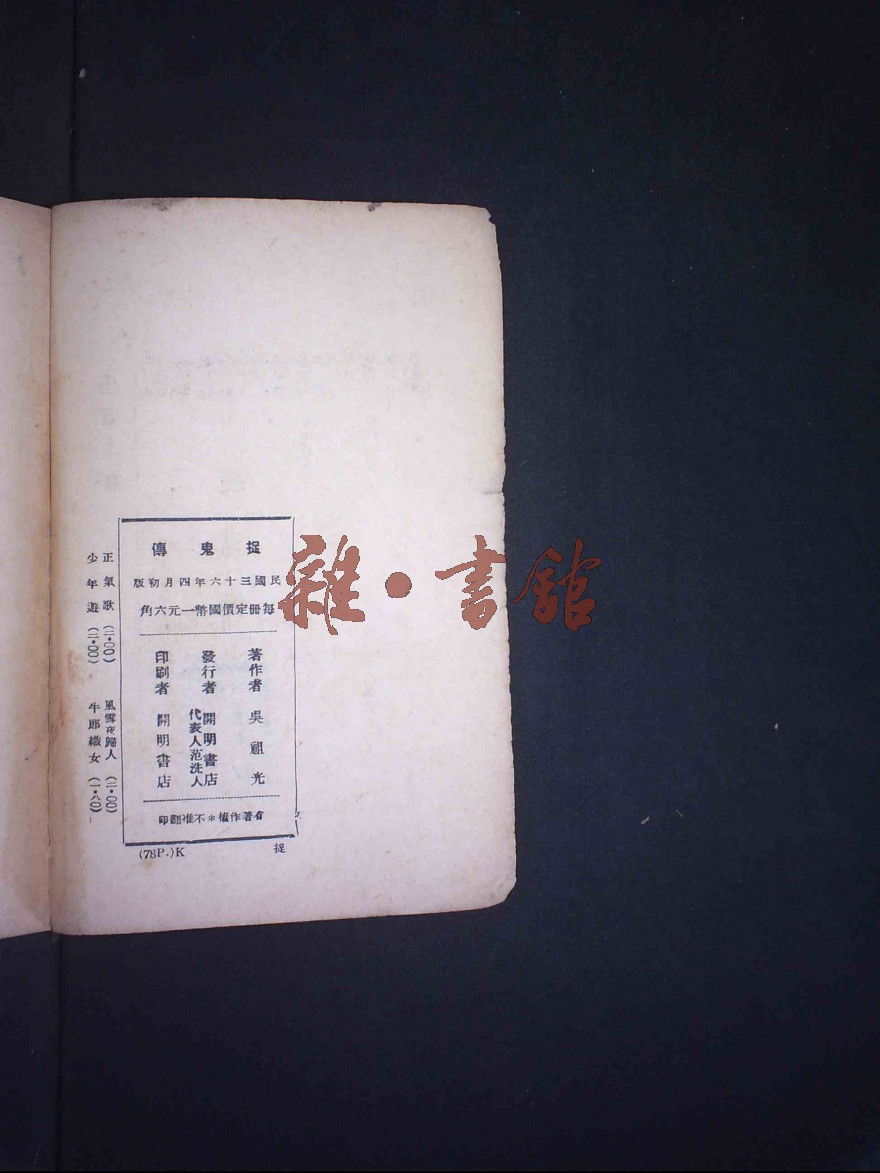 捉鬼傳
民國三十六年四月初版
每冊定價國幣一元六角
著作者 吳祖光
發行者 開明書店
代表人范洗人
印刷者 開明書店
有著作權*不准翻印
(78P.)K 捉
正氣歌(二・〇〇) 風雪夜歸人(二・〇〇)
少年遊(二・〇〇) 牛郎織女(一・八〇)
雜・書館